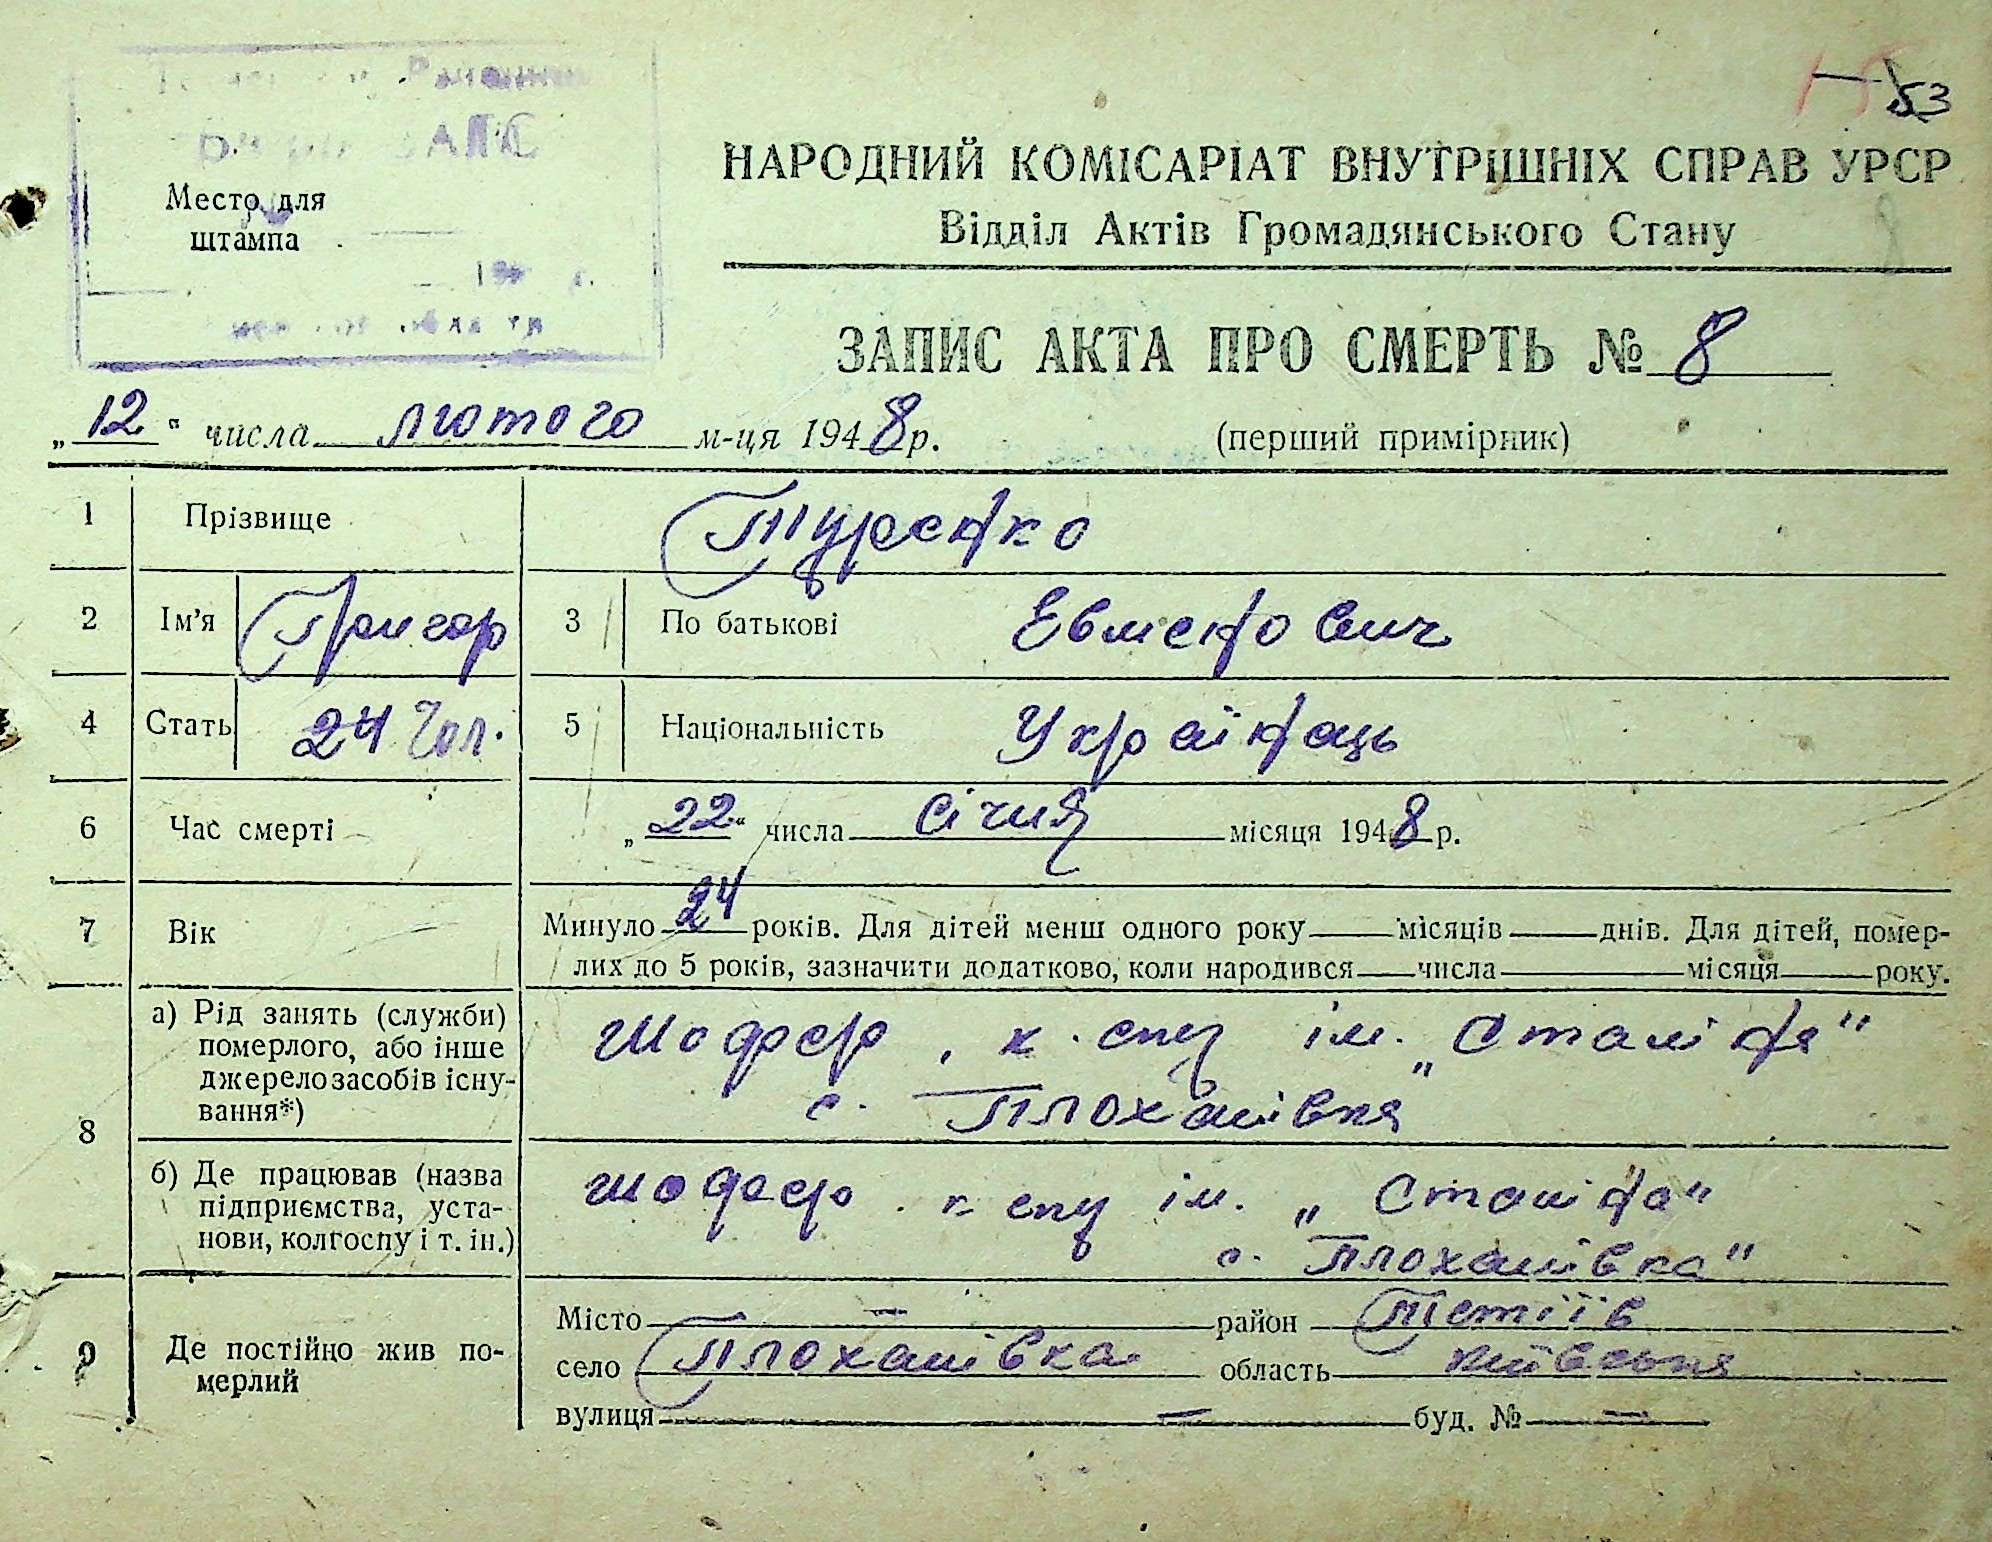 53
ЗАГС
Место для
штампа
НАРОДНИЙ КОМІСАРІАТ ВНУТРІШНІХ СПРАВ УРСР
Відділ Актів Громадянського Стану
ЗАПИС АКТА ПРО СМЕРТЬ № 8
„12“ числа лютого м-ця 1948 р. (перший примірник)
1 Прізвище Туренко
2 Ім'я Григор 3 По батькові Евменович
4 Стать 24 Чол. 5 Національність Українець
6 Час смерті „22“ числа січня місяця 1948 р.
7 Вік Минуло 24 років. Для дітей менш одного року — місяців — днів. Для дітей, помер-
лих до 5 років, зазначити додатково, коли народився — числа — місяця — року.
8 а) Рід занять (служби) померлого, або інше джерело засобів існу-вання*) Шофер, к. спу ім. „Сталіна"
с. Плоханівка
б) Де працював (назва підприємства, уста-нови, колгоспу і т. ін.) шофер к спу ім. „Сталіна"
с. Плоханівка"
9 Де постійно жив по-мерлий Місто — район Тетіїв
село Плоханівка область Київська
вулиця — буд. № —